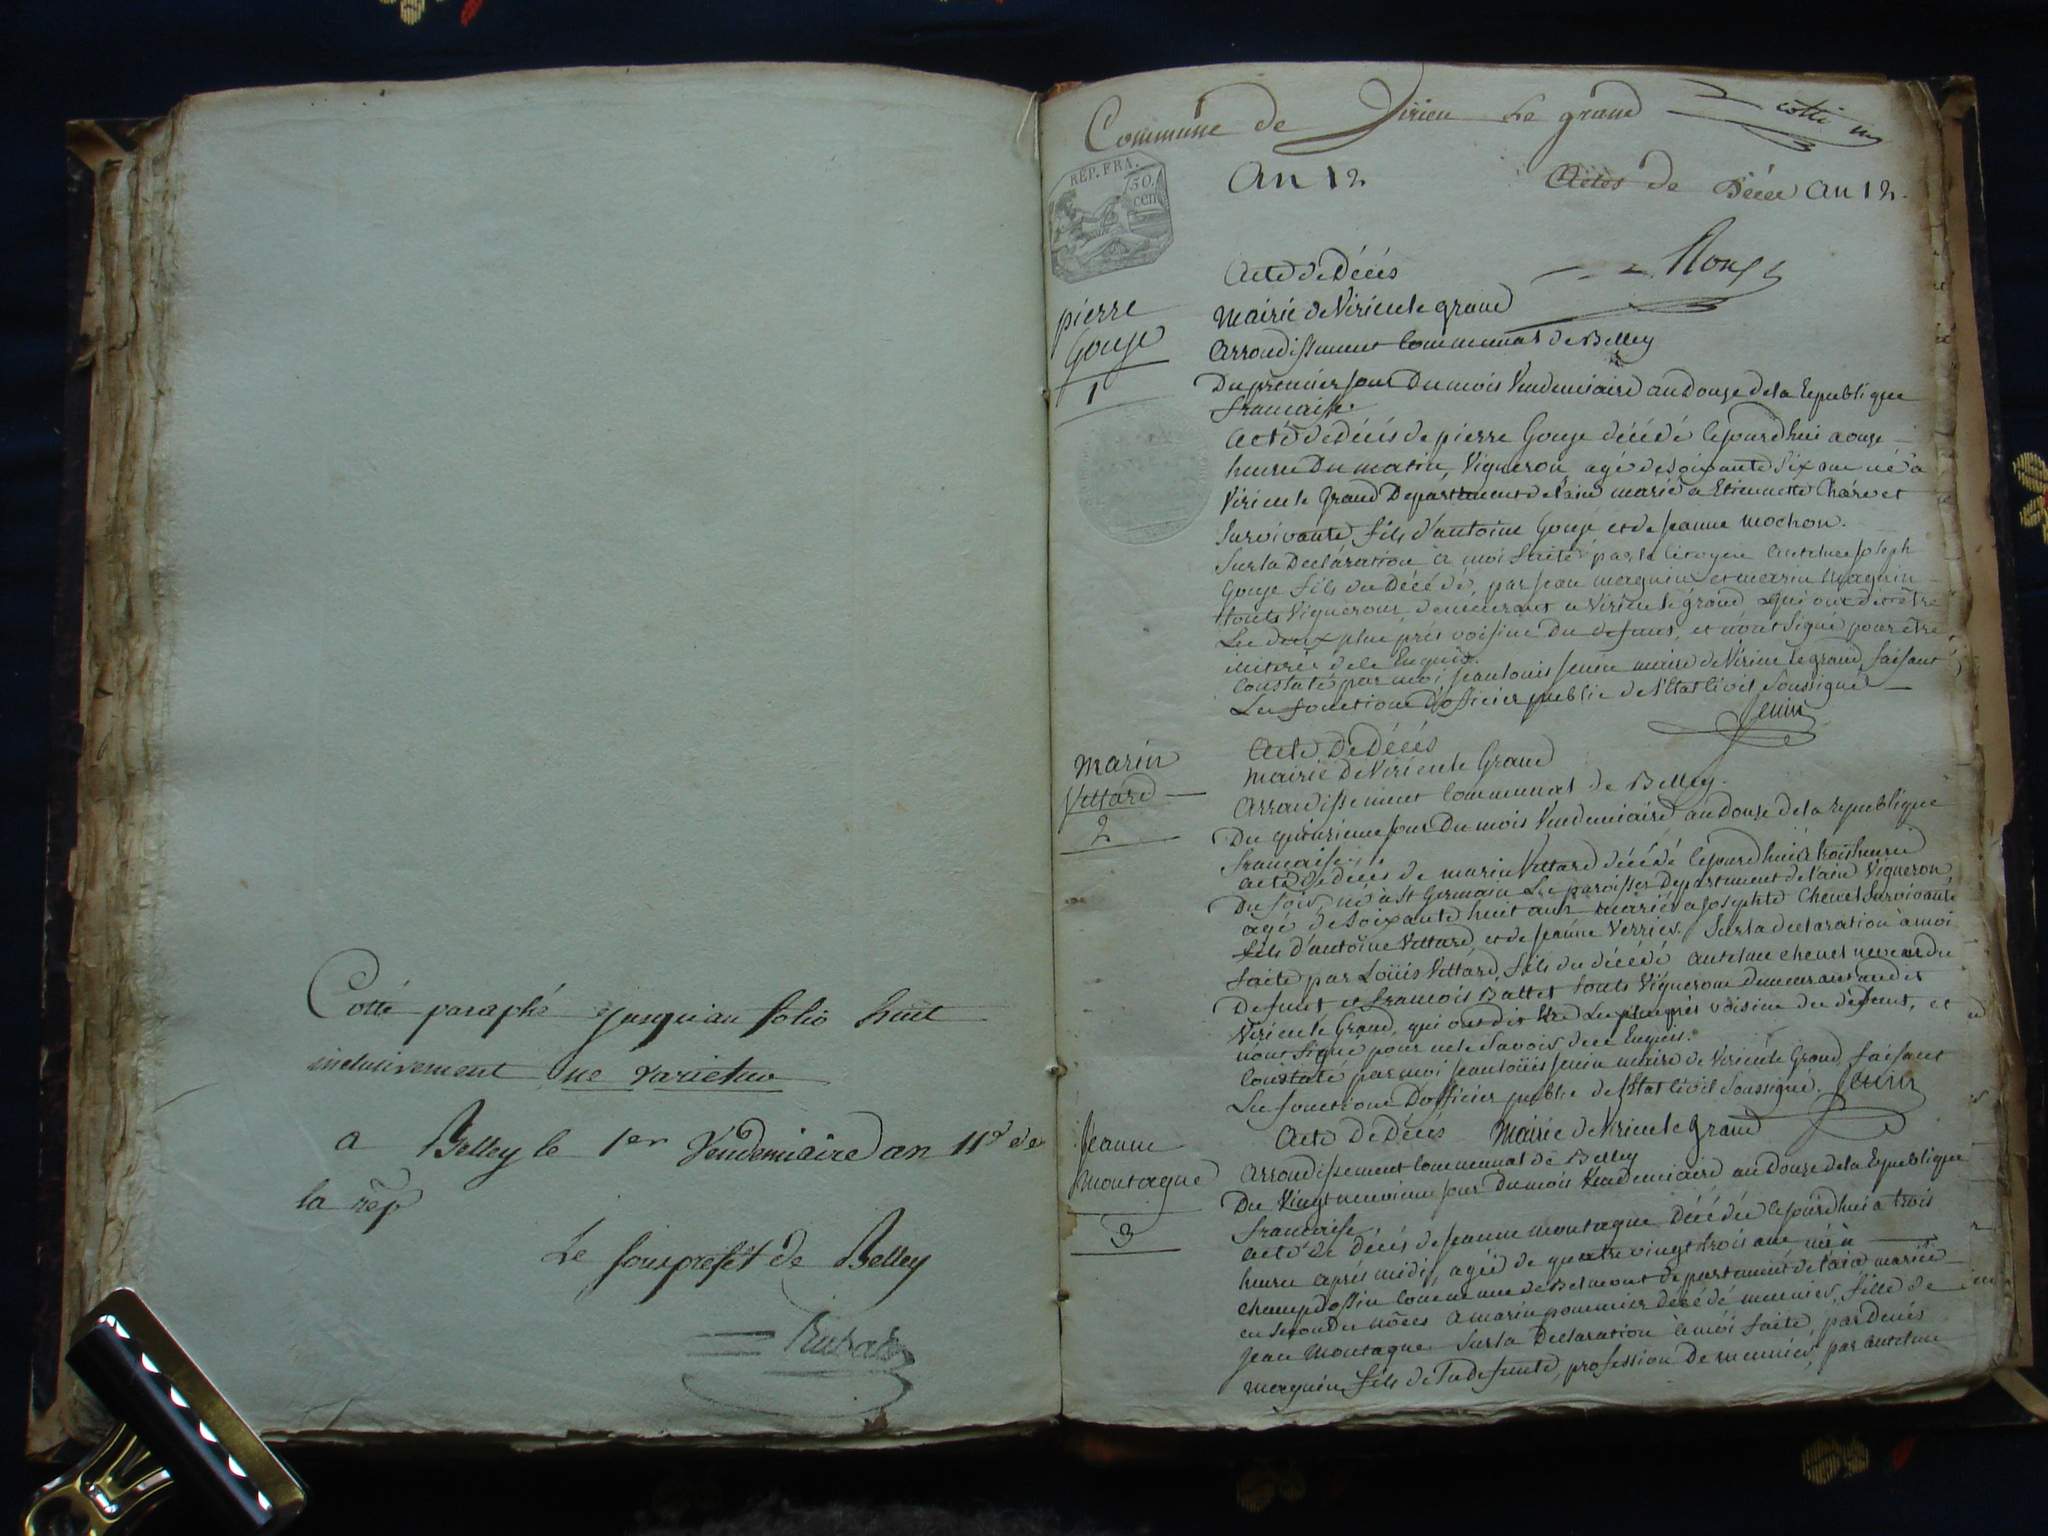 Cotté paraphé jusqu'au folio huit
inclusivement ne varietur
a Belley le 1er Vendemiaire an 11e de
la rep
Le souprefet de Belley
Commune de Virieu Le grand
REP. FRA.
50.
cen
An 12
Actes de Décé an 12.
Acte de Décés
Mairie de Virieu le grand
Arrondissement Communal de Belley
pierre
Gouje
1
Du premier jour Du mois Vendemiaire an Douze de la Republique
francaise.
acte de Décés de pierre Gouje décédé lejourdhui a onze
heures Du matin, Vigneron agé de soixante six ans né a
Virieu le grand Departement de l'ain marié a Etiennette Charvet
Survivante, fils d'antoine Gouje et de jeanne mochon.
Sur la Declaration à moi faite par le citoyen antelme joseph
Gouje fils du Décédé, par jean maguin et marin maguin
touts Vignerons demeurant a Virieu le grand qui ont dit être
Les deux plus près voisins Du defunt, et n'ont signé pour être
illiterés de ce Enquis.
Constaté par moi jean louis jenin maire de Virieu le grand, faisant
Les fonctions D'officier public de l'Etat Civil Soussigné
Jenin
marin
Vettard
2
Acte De Décés
Mairie de Virieu le Grand
Arrondissement Communal de Belley.
Du quinzieme jour Du mois Vendemiaire an Douze de la republique
francaise.
acte de Décés de marin Vettard décédé lejourdhui à trois heures
Du soir, né à St Germain Les paroisses Departement de l'ain Vigneron,
agé de soixante huit ans marié a josephte Chenet Survivante
fils d'antoine Vettard, et de jeanne Verries. Sur la declaration à moi
faite par Loüis Vettard, fils du décédé antelme chenet neveu du
Defunt et francois Battet touts Vignerons demeurant audit
Virieu le Grand, qui ont dit être Les plus près voisins du defunt, et
n'ont signé pour ne le savoir de ce Enquis.
Constaté par moi jean loüis jenin maire de Virieu le Grand, faisant
Les fonctions D'officier public de l'Etat Civil Soussigné. Jenin
Jeanne
montague
3
Acte De Décés Mairie de Virieu le grand
arrondissement Communal de Belley
Du Vingt neuvieme jour Du mois Vendemiaire an Douze de la Republique
francaise.
acte de Décés de jeanne montague Décédée lejourdhui a trois
heures après midi, agée de quatre vingt trois ans née à
champdossin commune de Belmont departement de l'ain mariée
en secondes nôces a marin pommier décédé meunier, fille de
jean Montague Sur la Declaration à moi faite, par Denis
maguin, fils de la defunte, profession De meunier, par antelme